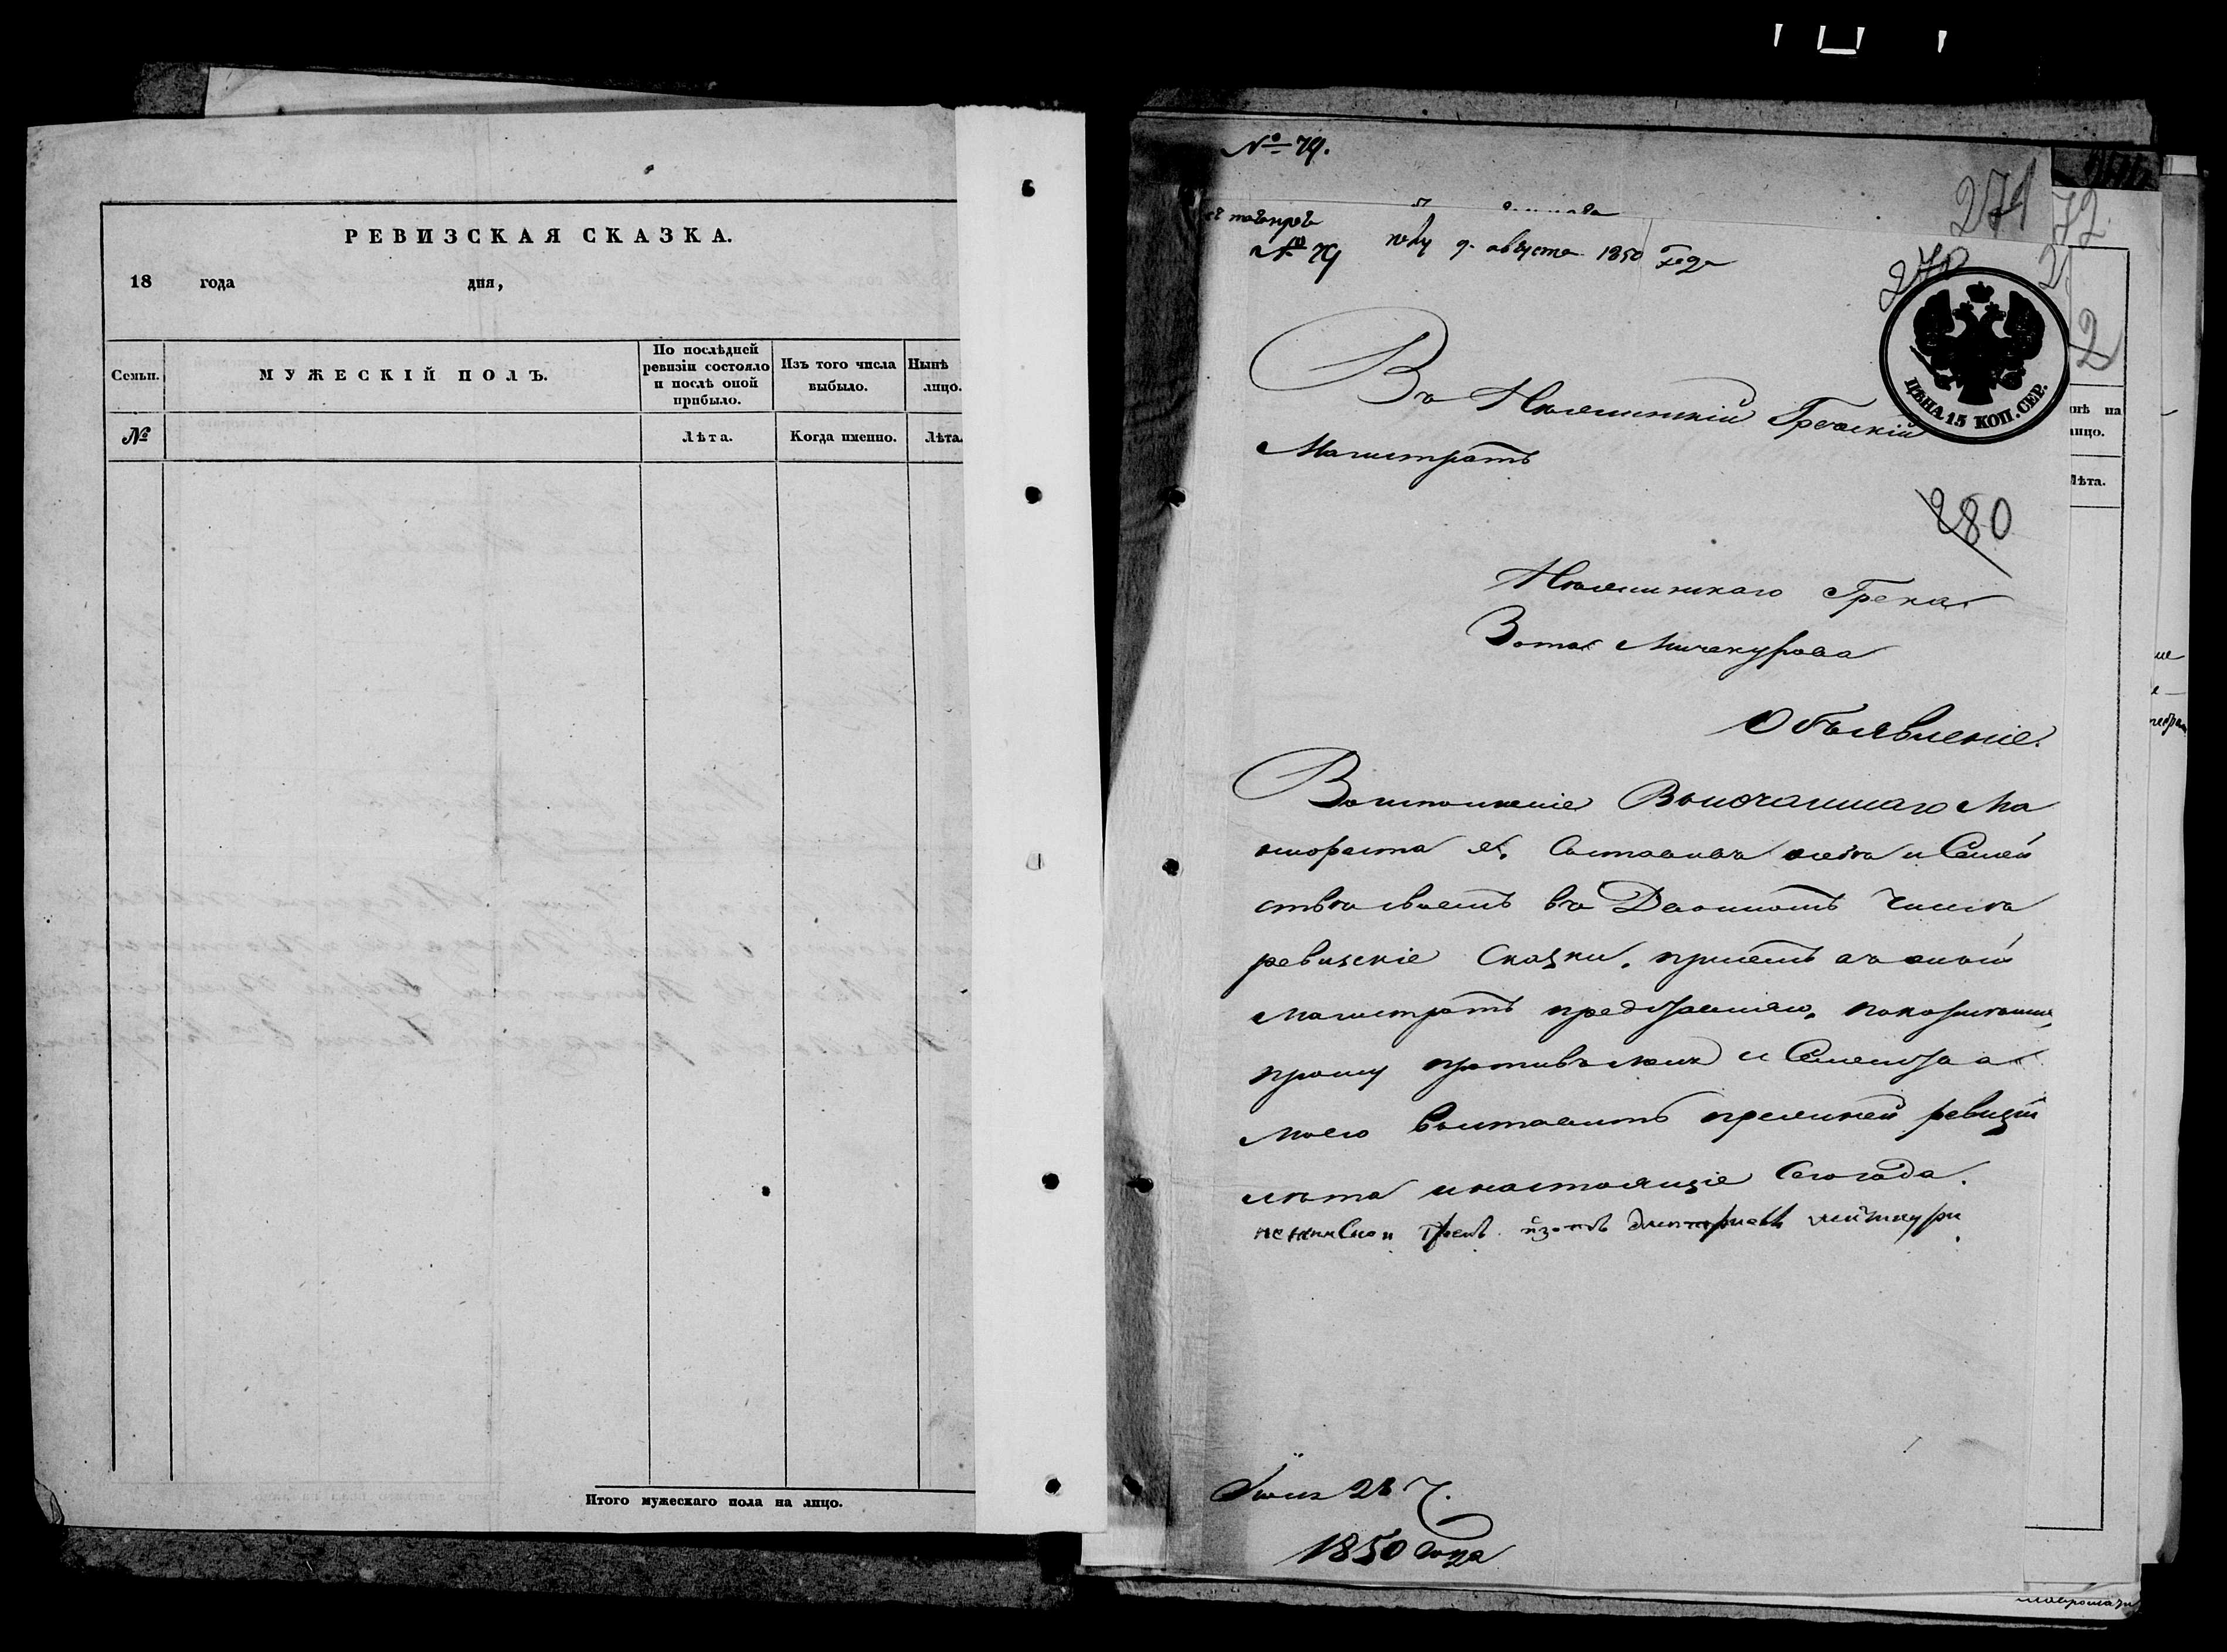 РЕВИЗСКАЯ СКАЗКА.
18 года дня,
Семьи.
МУЖЕСКІЙ ПОЛЪ.
По послѣдней ревизіи состояло и послѣ оной прибыло.
Изъ того числа выбыло.
Нынѣ лицо.
№
Лѣта.
Когда именно.
Лѣта.
Итого мужескаго пола на лицо.
№ 79.
№ 79
9. августа 1850 Года
271
270
72
2
ЦѢНА 15 КОП. СЕР.
нѣ на
лицо.
Лѣта.
Въ Нѣжинскій Греческій
Магистратъ
280
Нѣжинскаго Грека
Зота Мичакурова
Объявленіе.
Воисполненіе Высочайшаго Ма
нифеста я, Составивъ о себѣ и Семей
ствѣ своемъ въ Двойномъ Числѣ
ревизскіе Сказки, при семъ въ оный
Магистратъ представляю, покорнейше
прошу противъ меня и Семейства
моего выставить прежней ревизіи
лѣта и настоящіе Сего года.
Грекъ
Іюля 28 ч.
1850 года